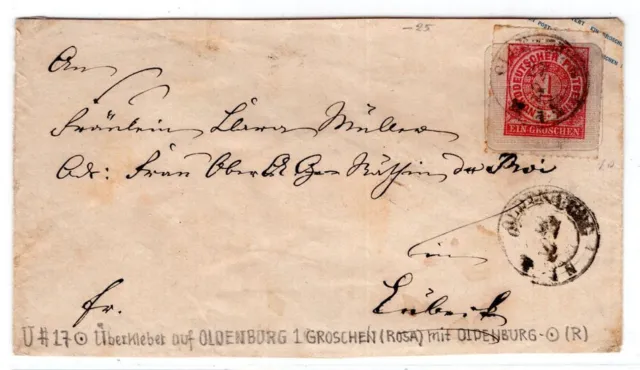 -25
NORDDEUTSCHER POSTBEZIRK
1
EIN GROSCHEN
An
Fräulein Clara Müller
Adr: Frau Ober Räthin du Roi
OLDENBURG
in
fr.
Lübeck
U #17 ⊙ Überkleber auf OLDENBURG 1 GROSCHEN (ROSA) mit OLDENBURG-⊙ (R)